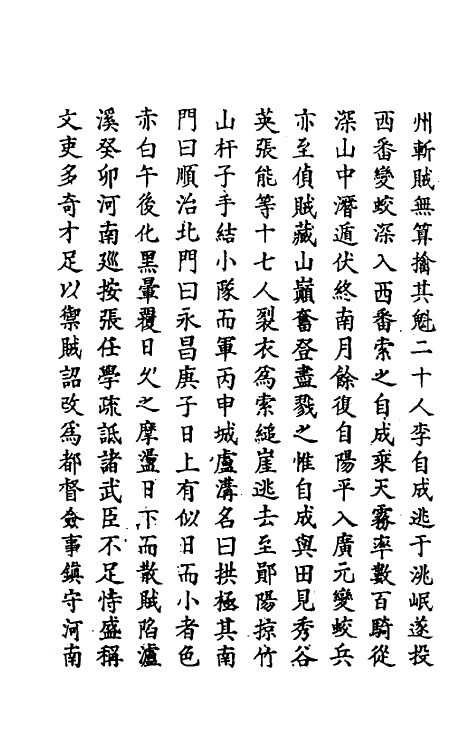 州斬賊無算擒其魁二十人李自成逃于洮岷遂投
西番變蛟深入西番索之自成乘天霧率數百騎從
深山中潛遁伏終南月餘復自陽平入廣元變蛟兵
亦至偵賊藏山巔奮登盡戮之惟自成與田見秀谷
英張能等十七人裂衣為索縋崖逃去至鄖陽掠竹
山杆子手結小隊而軍丙申城盧溝名曰拱極其南
門曰順治北門曰永昌庚子日上有似日而小者色
赤白午後化黑暈覆日久之摩盪日下而散賊陷瀘
溪癸卯河南廵按張任學疏詆諸武臣不足恃盛稱
文吏多奇才足以禦賊詔改為都督僉事鎮守河南